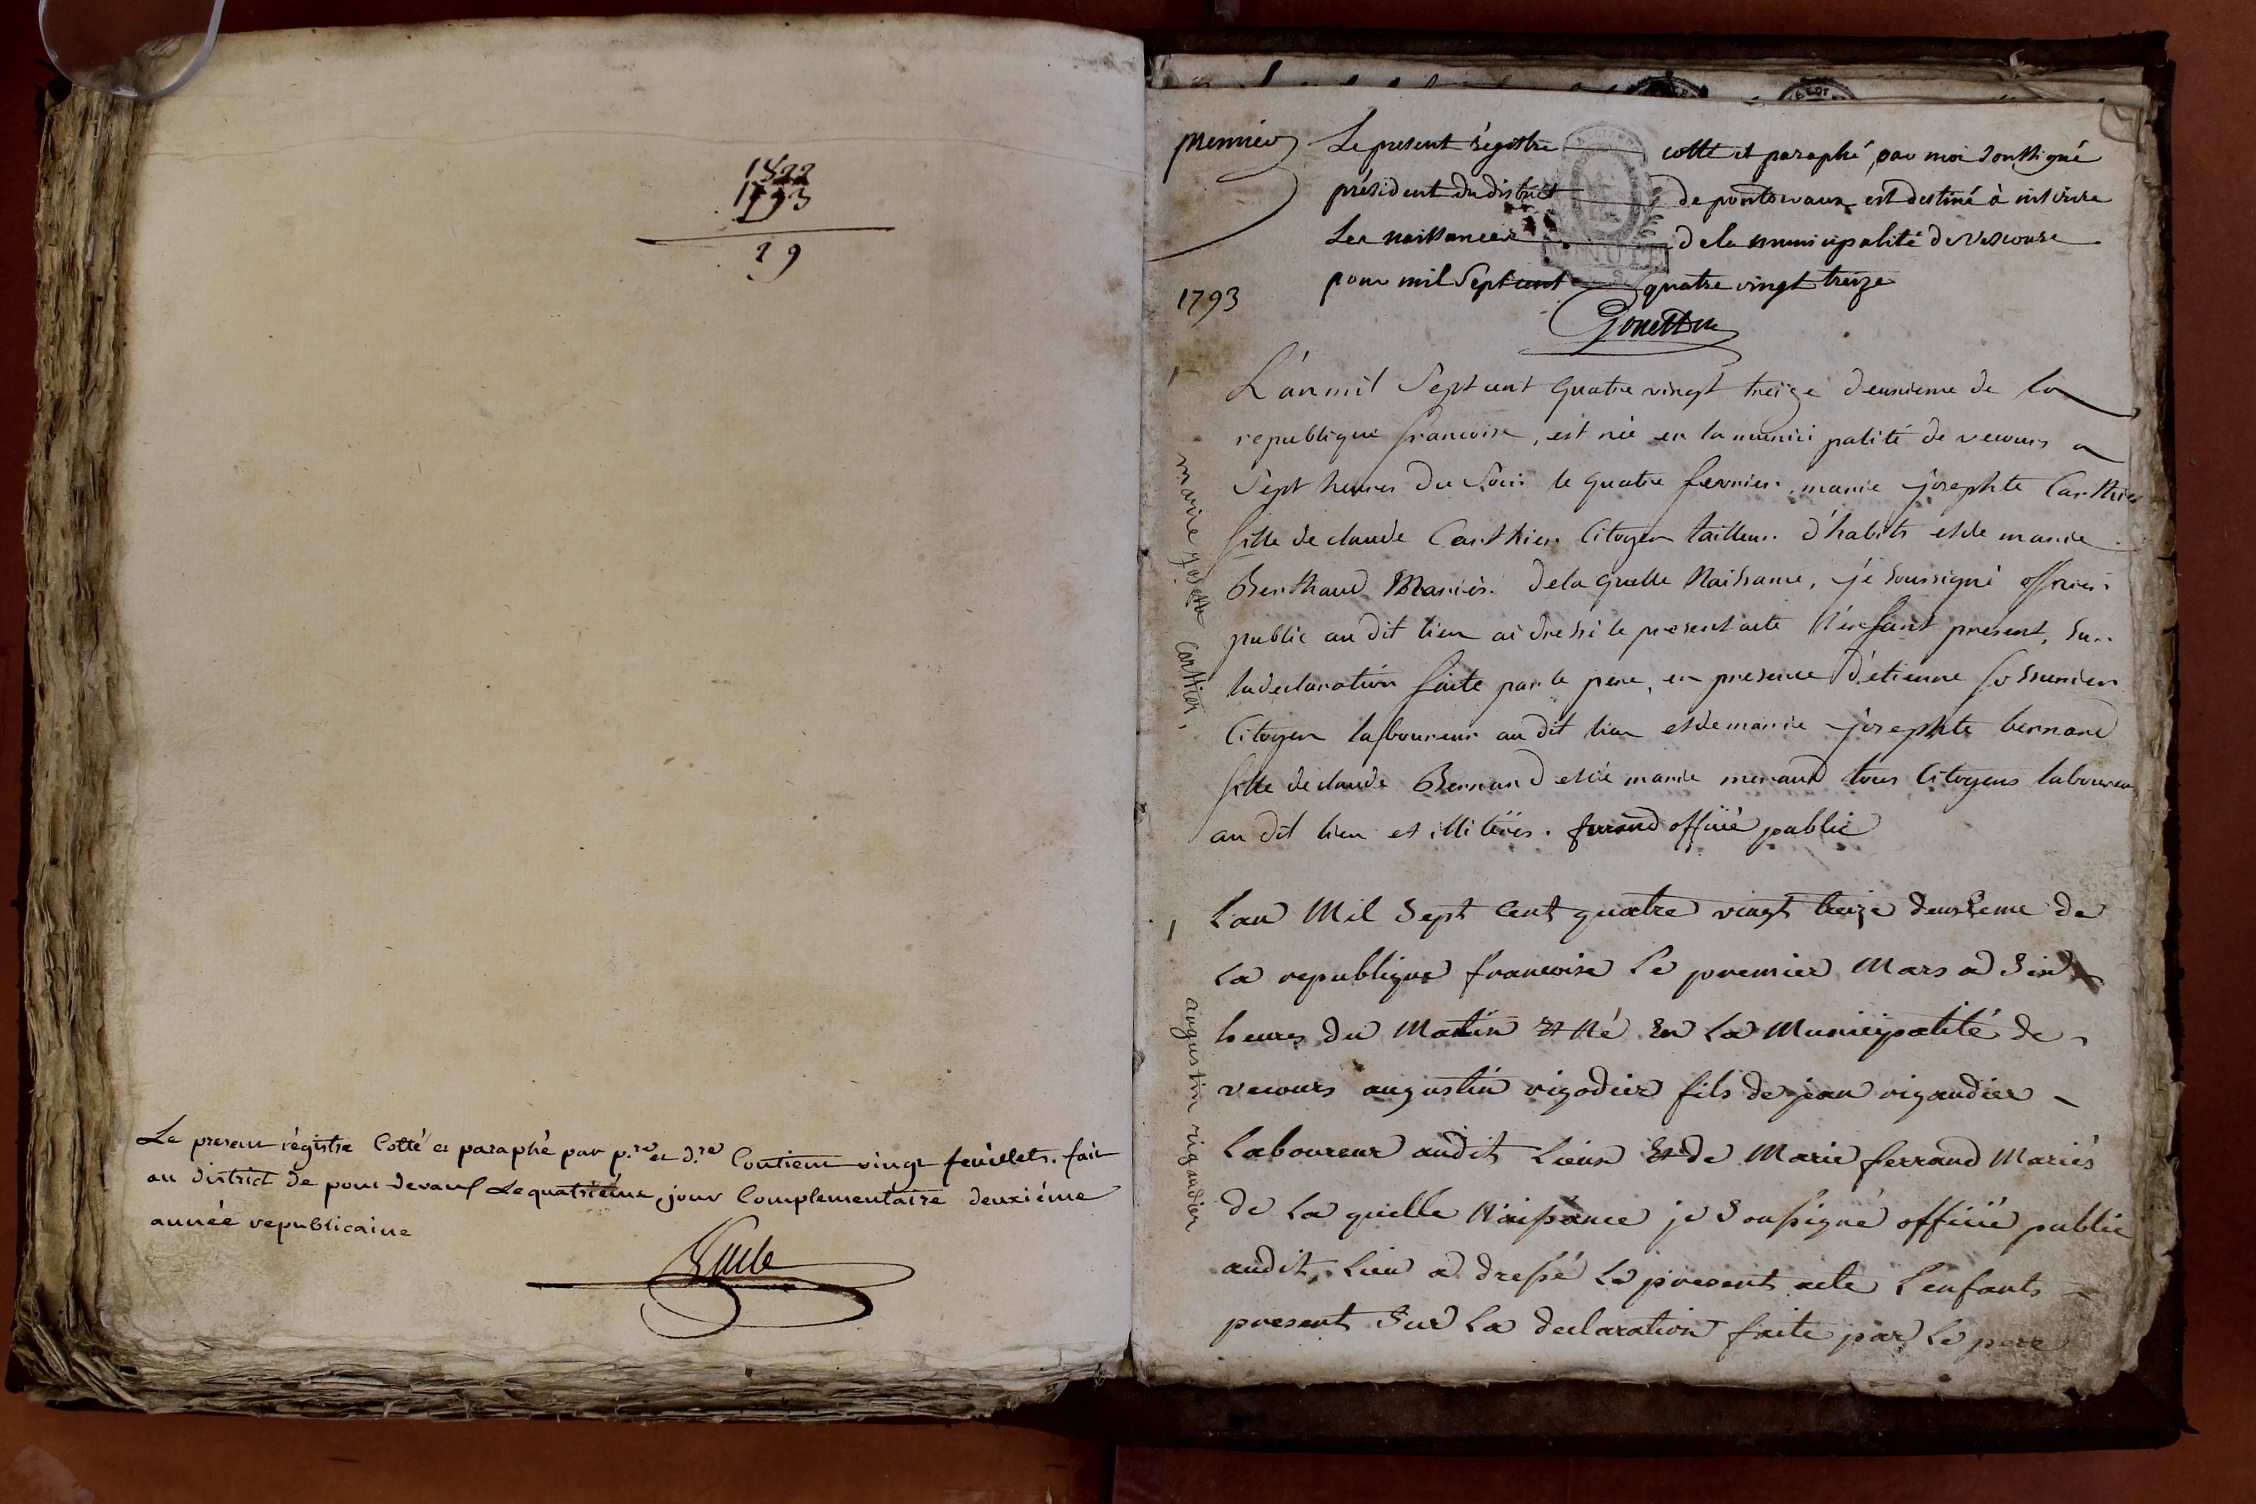 1822
1793
29
Le present régistre Cotté et paraphé par p.re et d.re Contient vingt feuillets. fait
au district de pont-devaux le quatriéme jour Complementaire deuxiéme
année republicaine
premier
Le present régistre cotté et paraphé par moi soussigné
président du district de pontdevaux est destiné à inscrire
Les naissances de la municipalité de Vescours
pour mil sept cent quatre vingt treize
1793
L'an mil Sept cent quatre vingt treize deuxieme de la
republique francoise, est née en la municipalité de vecours a
Sept heures du Soir le quatre fevrier marie josephte Carthier
fille de claude Carthier Citoyen tailleur d'habits et de marie
Berthaud Mariés. de la quelle Naissance, je soussigné officier
public au dit lieu ai dressé le present acte l'enfant present, sur
la declaration faite par le pere, en presence d'etienne
Citoyen laboureur au dit lieu et de marie josephte bernard
fille de claude Bernard et de marie tous Citoyens laboureurs
au dit lieu et illiterés. ferrand officié public
marie josephte Carthier,
L'an Mil Sept Cent quatre vingt treize deuxieme de
La republique francoise Le premier Mars a Six
heures du Matin est Né En La Municipalité de
vecours augustin rigodier fils de jean rigaudier
Laboureur audit Lieux Et de Marie ferrand Mariés
de La quelle Naissance je Soussigné officié public
audit Lieu a dressé Le present acte L'enfants
present Sur La declaration faite par Le pere
augustin rigaudier